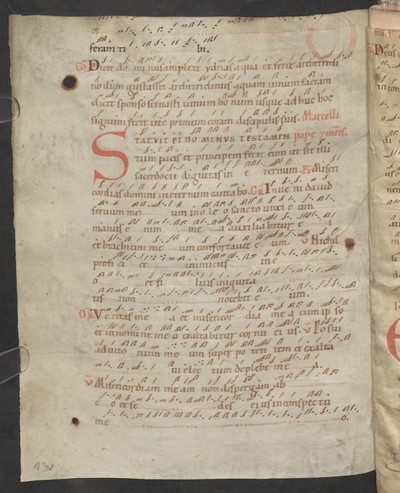 feram ti bi.
Co Dicit dominus implete ydrias aqua et ferte architricli
no dum gustasset architriclinus aquam uinum factam
dicit sponso seruasti uinum bonum usque adhuc hoc
signum fecit iesus primum coram discipulis suis. Marcelli
STATVIT EI DOMINVS TESTAMEN pape
tum pacis et principem fecit eum ut sit illi
sacerdotii dignitas in e ternum. Ps Miseri
cordias domini in eternum cantabo. Gr Inueni dauid
seruum me um in o le o sancto unxi e um
manus e nim me a auxiliabitur e
et brachium me um confortauit e um. V Nichil
profi ci et inimicus in e
o et fi lius iniquita
tis non nocebit e um.
Of Veritas me a et misericor di a me a cum ip so
et in nomine me o exaltabitur cornu ei us. V Posui
adiuto rium me um super po ten tem et exalta
ui elec tum de plebe me
V Misericordiam meam non dispergam ab
e o et se des ei us in conspectu
me o.